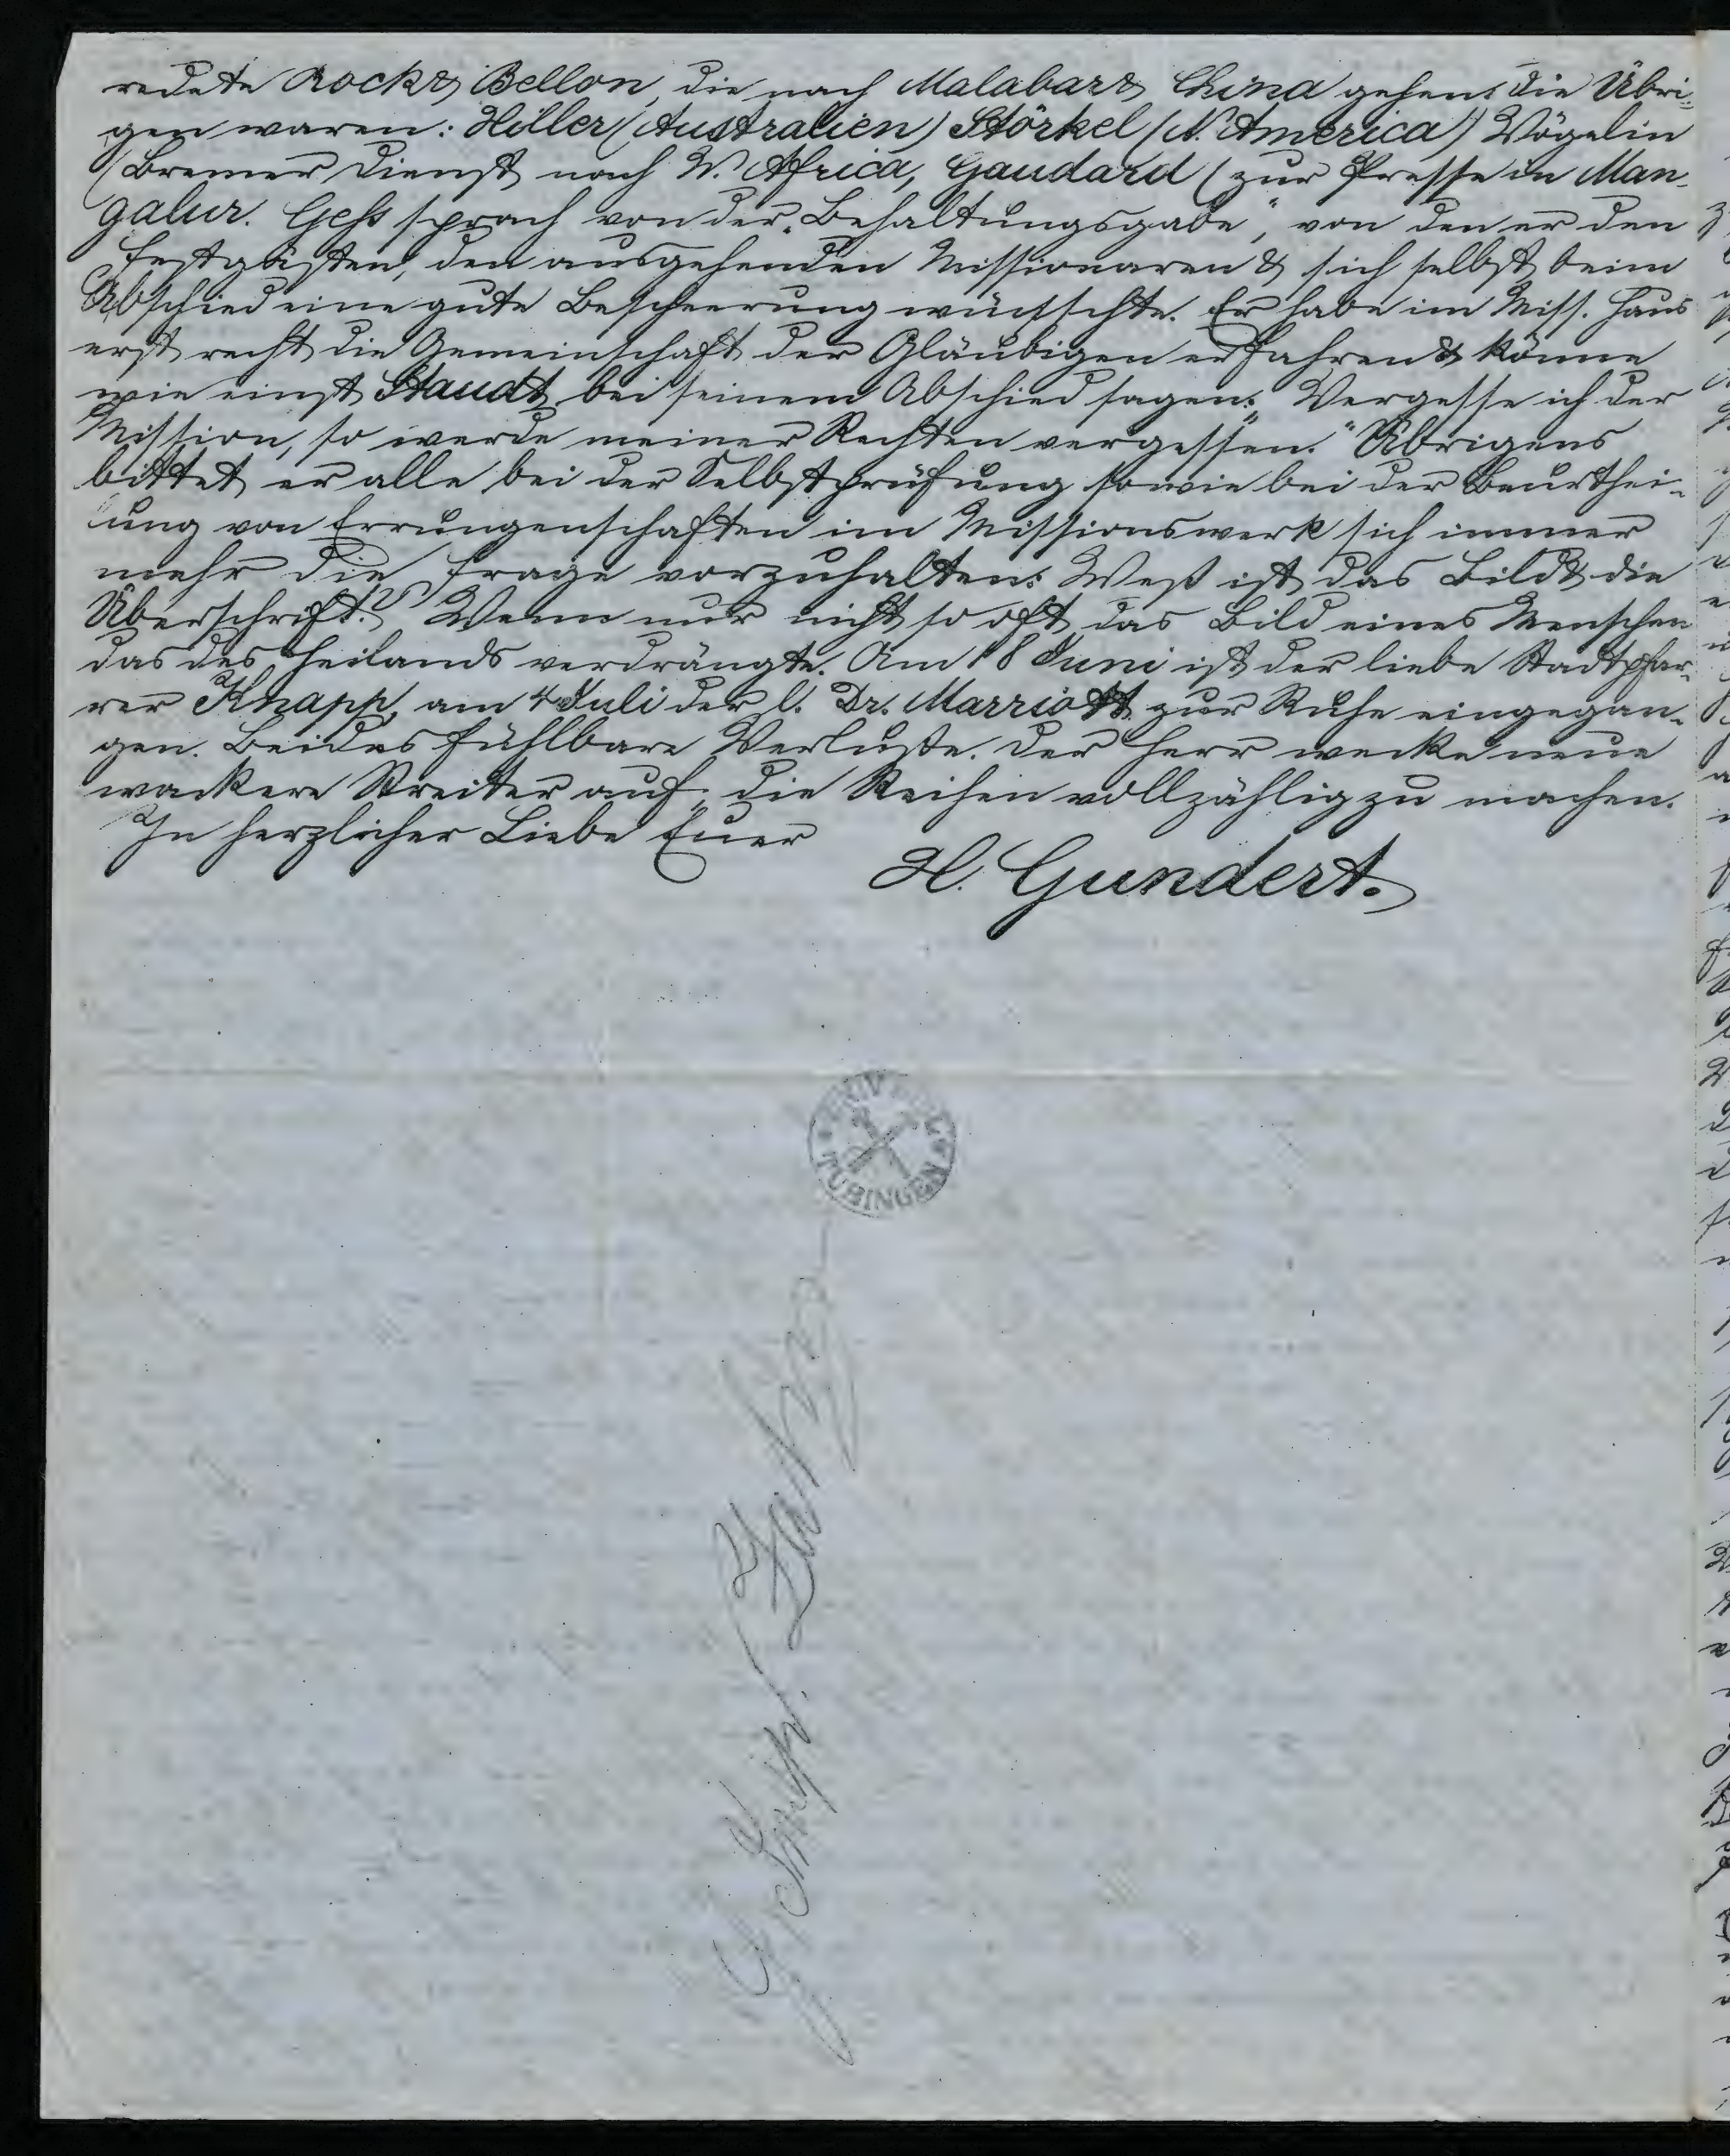 redete Rock & Bellon, die nach Malabar & China gehen. Die Übri-
gen waren: Hiller (Australien) Störkel (N. America) Vögelin
(Bremer Dienst nach W. Africa, Gaudard (zur Presse in Man-
galur. Gess sprach von der „Behaltungsgabe", von den er den
Festgästen, den ausgehenden Missionaren & sich selbst beim
Abschied eine gute Bescheerung wünschte. Er habe im Miss. Haus
erst recht die Gemeinschaft der Gläubigen erfahren & könne
wie einst Staudt bei seinem Abschied sagen: „Vergesse ich der
Mission, so werde meiner Rechten vergessen." Übrigens
bittet er alle bei der Selbstprüfung sowie bei der Beurthei-
lung von Errungenschaften im Missionswerk sich immer
mehr die Frage vorzuhalten: Weß ist das Bild & die
Überschrift? Wenn nur nicht so oft das Bild eines Menschen
das des Heilands verdrängte. Am 18 Juni ist der liebe Stadtpfar-
rer Knapp, am 4 Juli der l. Dr. Marriott zur Ruhe eingegan-
gen. Beides fühlbare Verluste. Der Herr wecke neue
wackere Streiter auf, die Reihen vollzählig zu machen.
In herzlicher Liebe Euer
H. Gundert.
TÜBINGEN